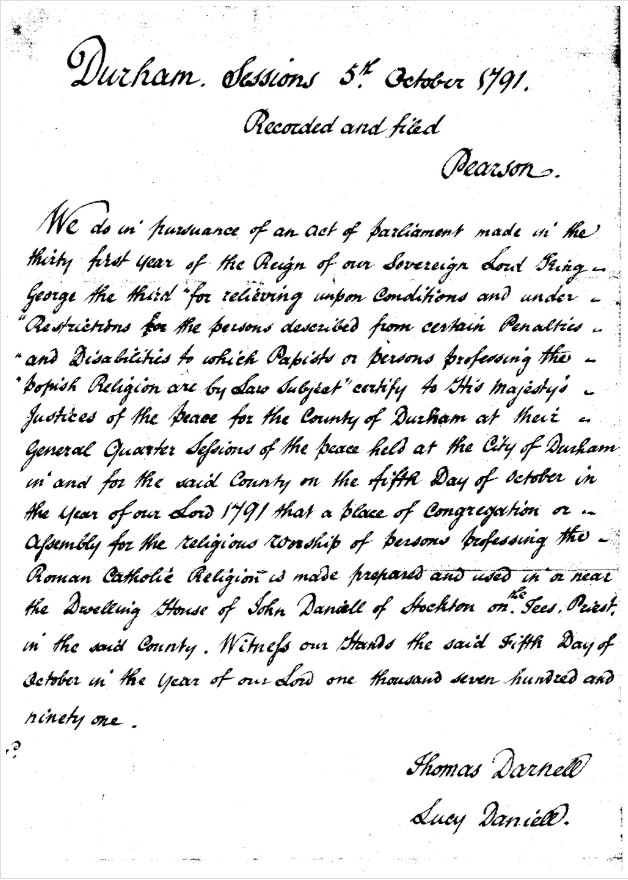 Durham. Sessions 5th. October 1791.
Recorded and filed
Pearson.
We do in pursuance of an Act of parliament made in the
thirty first year of the Reign of our Sovereign Lord King
George the third "for relieving unpon Conditions and under
"Restrictions for the persons described from certain Penalties
"and Disabilities to which Papists or persons professing the
"popish Religion are by Law Subject" certify to His Majesty's
Justices of the peace for the County of Durham at their
General Quarter Sessions of the peace held at the City of Durham
in and for the said County on the fifth Day of October in
the year of our Lord 1791 that a place of Congregation or
Assembly for the religious worship of persons professing the
Roman Catholic Religion is made prepared and used in or near
the Dwelling House of John Daniell of Stockton on the Tees, Priest,
in the said County. Witness our Hands the said Fifth Day of
October in the year of our Lord one thousand seven hundred and
ninety one.
Thomas Darnell
Lucy Daniell.